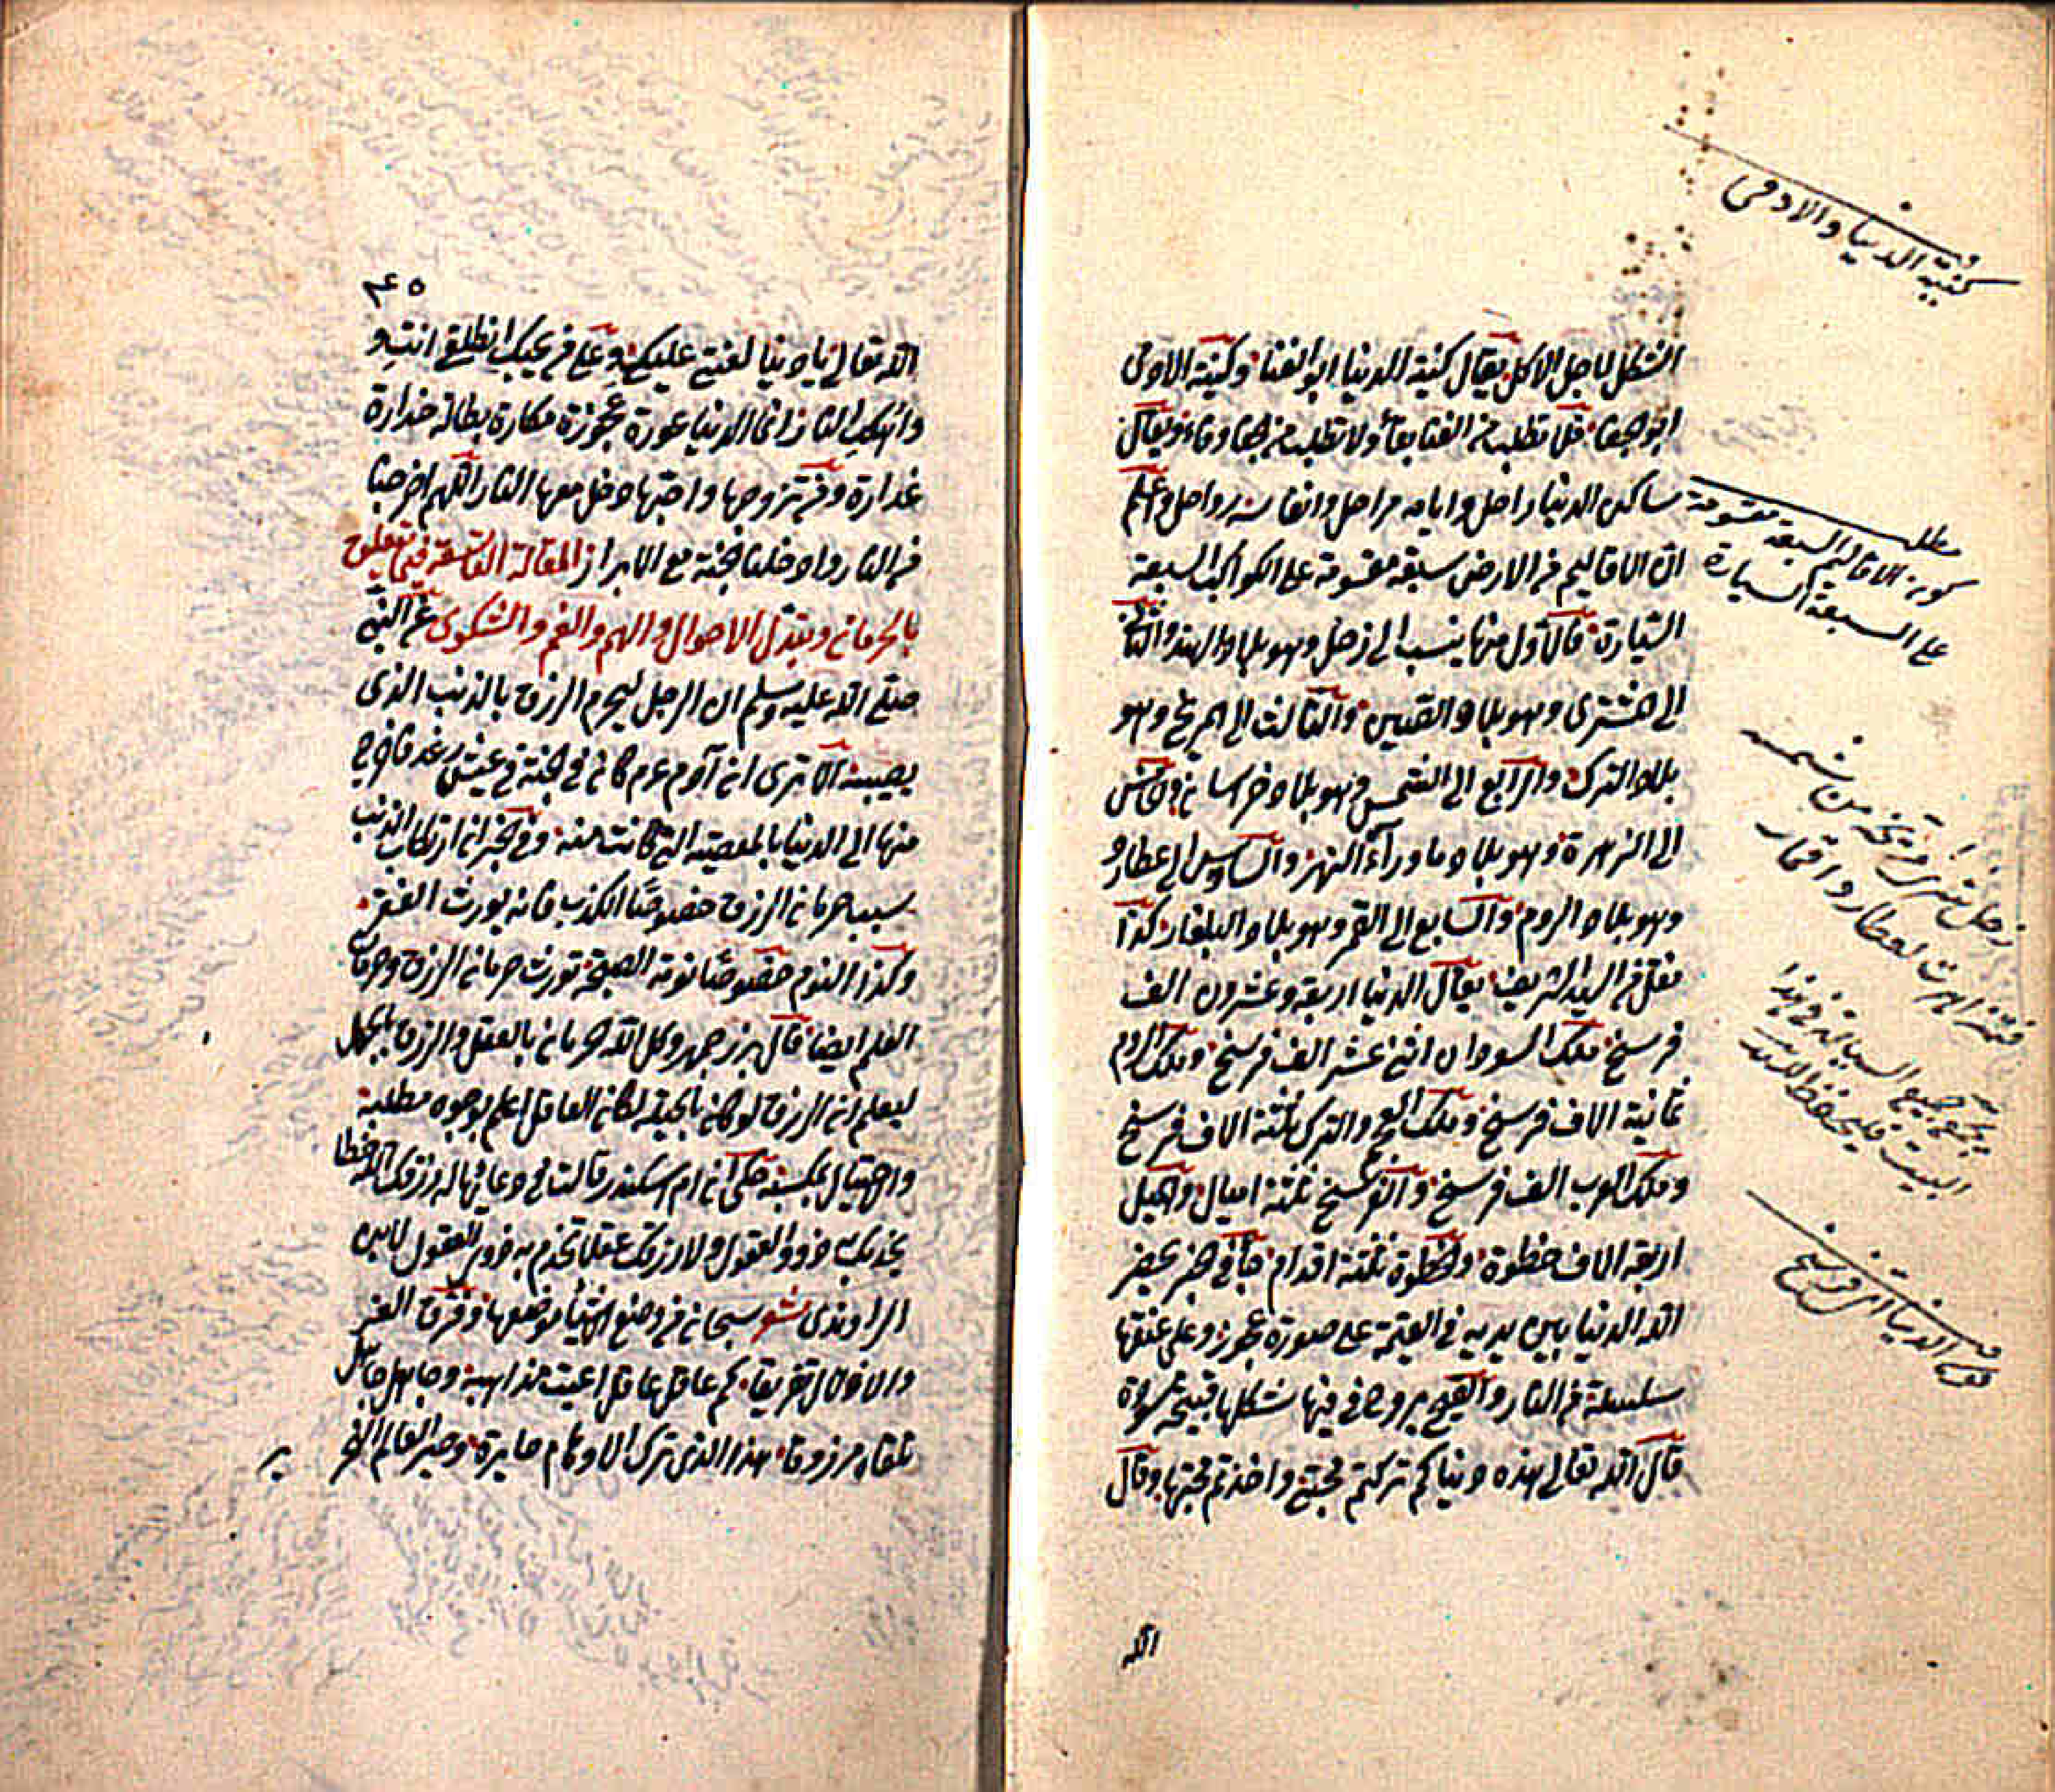 كنية الدنيا والادمي
الشكل لاجل الاكل يقال كنية الدنيا ابو الفنا وكنية الادمى
ابو الجفا فلا تطلب من الفنا بقاء ولا تطلب من الجفا وفاء ويقال
ساكن الدنيا راحل وايامه مراحل وانفاسه رواحل واعلم
ان الاقاليم فى الارض سبعة مقسومة على الكواكب السبعة
السيارة فالاول منها ينسب الى زحل وهو بلاد الهند والثانى
الى المشترى وهو بلاد الصين والثالث الى المريخ وهو
بلاد الترك والرابع الى الشمس وهو بلاد خراسان والخامس
الى الزهرة وهو بلاد ما وراء النهر والسادس الى عطارد
وهو بلاد الروم والسابع الى القمر وهو بلاد البلغار كذا
نقل من السيد الشريف يقال الدنيا اربعة وعشرون الف
فرسخ ملك السودان اثنى عشر الف فرسخ وملك الروم
ثمانية الاف فرسخ وملك العجم والترك ثلثة الاف فرسخ
وملك العرب الف فرسخ والفرسخ ثلثة اميال والميل
اربعة الاف خطوة والخطوة ثلثة اقدام جاء فى الخبر يحضر
الله الدنيا بين يديه فى القيمة على صورة عجوز وعلى عنقها
سلسلة من النار والقيح يروح فى فيها شكلها قبيحة
قال الله تعالى هذه دنياكم تركتم محبتى واخذتم محبتها وقال
الله
مطلب
كون الاقاليم السبعة مقسومة
على السبعة السيارة
زحل شرى مريخه من شمسه
فتزاهرت لعطارد واقمار
جميع السيارة فى هذا
البيت فليحفظ
الدنيا فرسخ
٤٥
الله تعالى يا دنيا لعنتى عليك وعلى من يحبك انطلقى انت و
واهلك الى النار انما الدنيا عورة عجوزة مكارة بطالة خدارة
غدارة ومن تزوجها واحبها دخل معها النار اللهم اخرجنا
من النار وادخلنا الجنة مع الابرار المقالة التاسعة فيما يتعلق
بالحرمان وتبدل الاحوال والهم والغم والشكوى عن النبى
صلى الله عليه وسلم ان الرجل ليحرم الرزق بالذنب الذى
يصيبه الا ترى ان آدم عم كان فى الجنة فى عيش رغد فاخرج
منها الى الدنيا بالمعصية التى كانت منه وفى الخبر ان ارتكاب الذنب
سبب حرمان الرزق خصوصا الكذب فانه يورث الفقر
وكذا النوم خصوصا نومة الصبحة تورث حرمان الرزق وحرمان
العلم ايضا قال بزرجمهر وكل الله الحرمان بالعقل والرزق بالجهل
ليعلم ان الرزق لو كان بالحيلة لكان العاقل اعلم بوجوه مطلبه
واحتيال مكسبه حكى ان ام اسكندر قالت فى دعائها له رزقك الله حظا
يخدمك به ذوو العقول ولا رزقك عقلا تخدم به ذوى العقول لابن
الراوندى شعر سبحان من وضع الاشياء موضعها وفرق العز
والاذلال تفريقا كم عاقل عاقل اعيت مذاهبه وجاهل جاهل
تلقاه مرزوقا هذا الذى ترك الاوهام حايرة وصير العالم النحر
ير